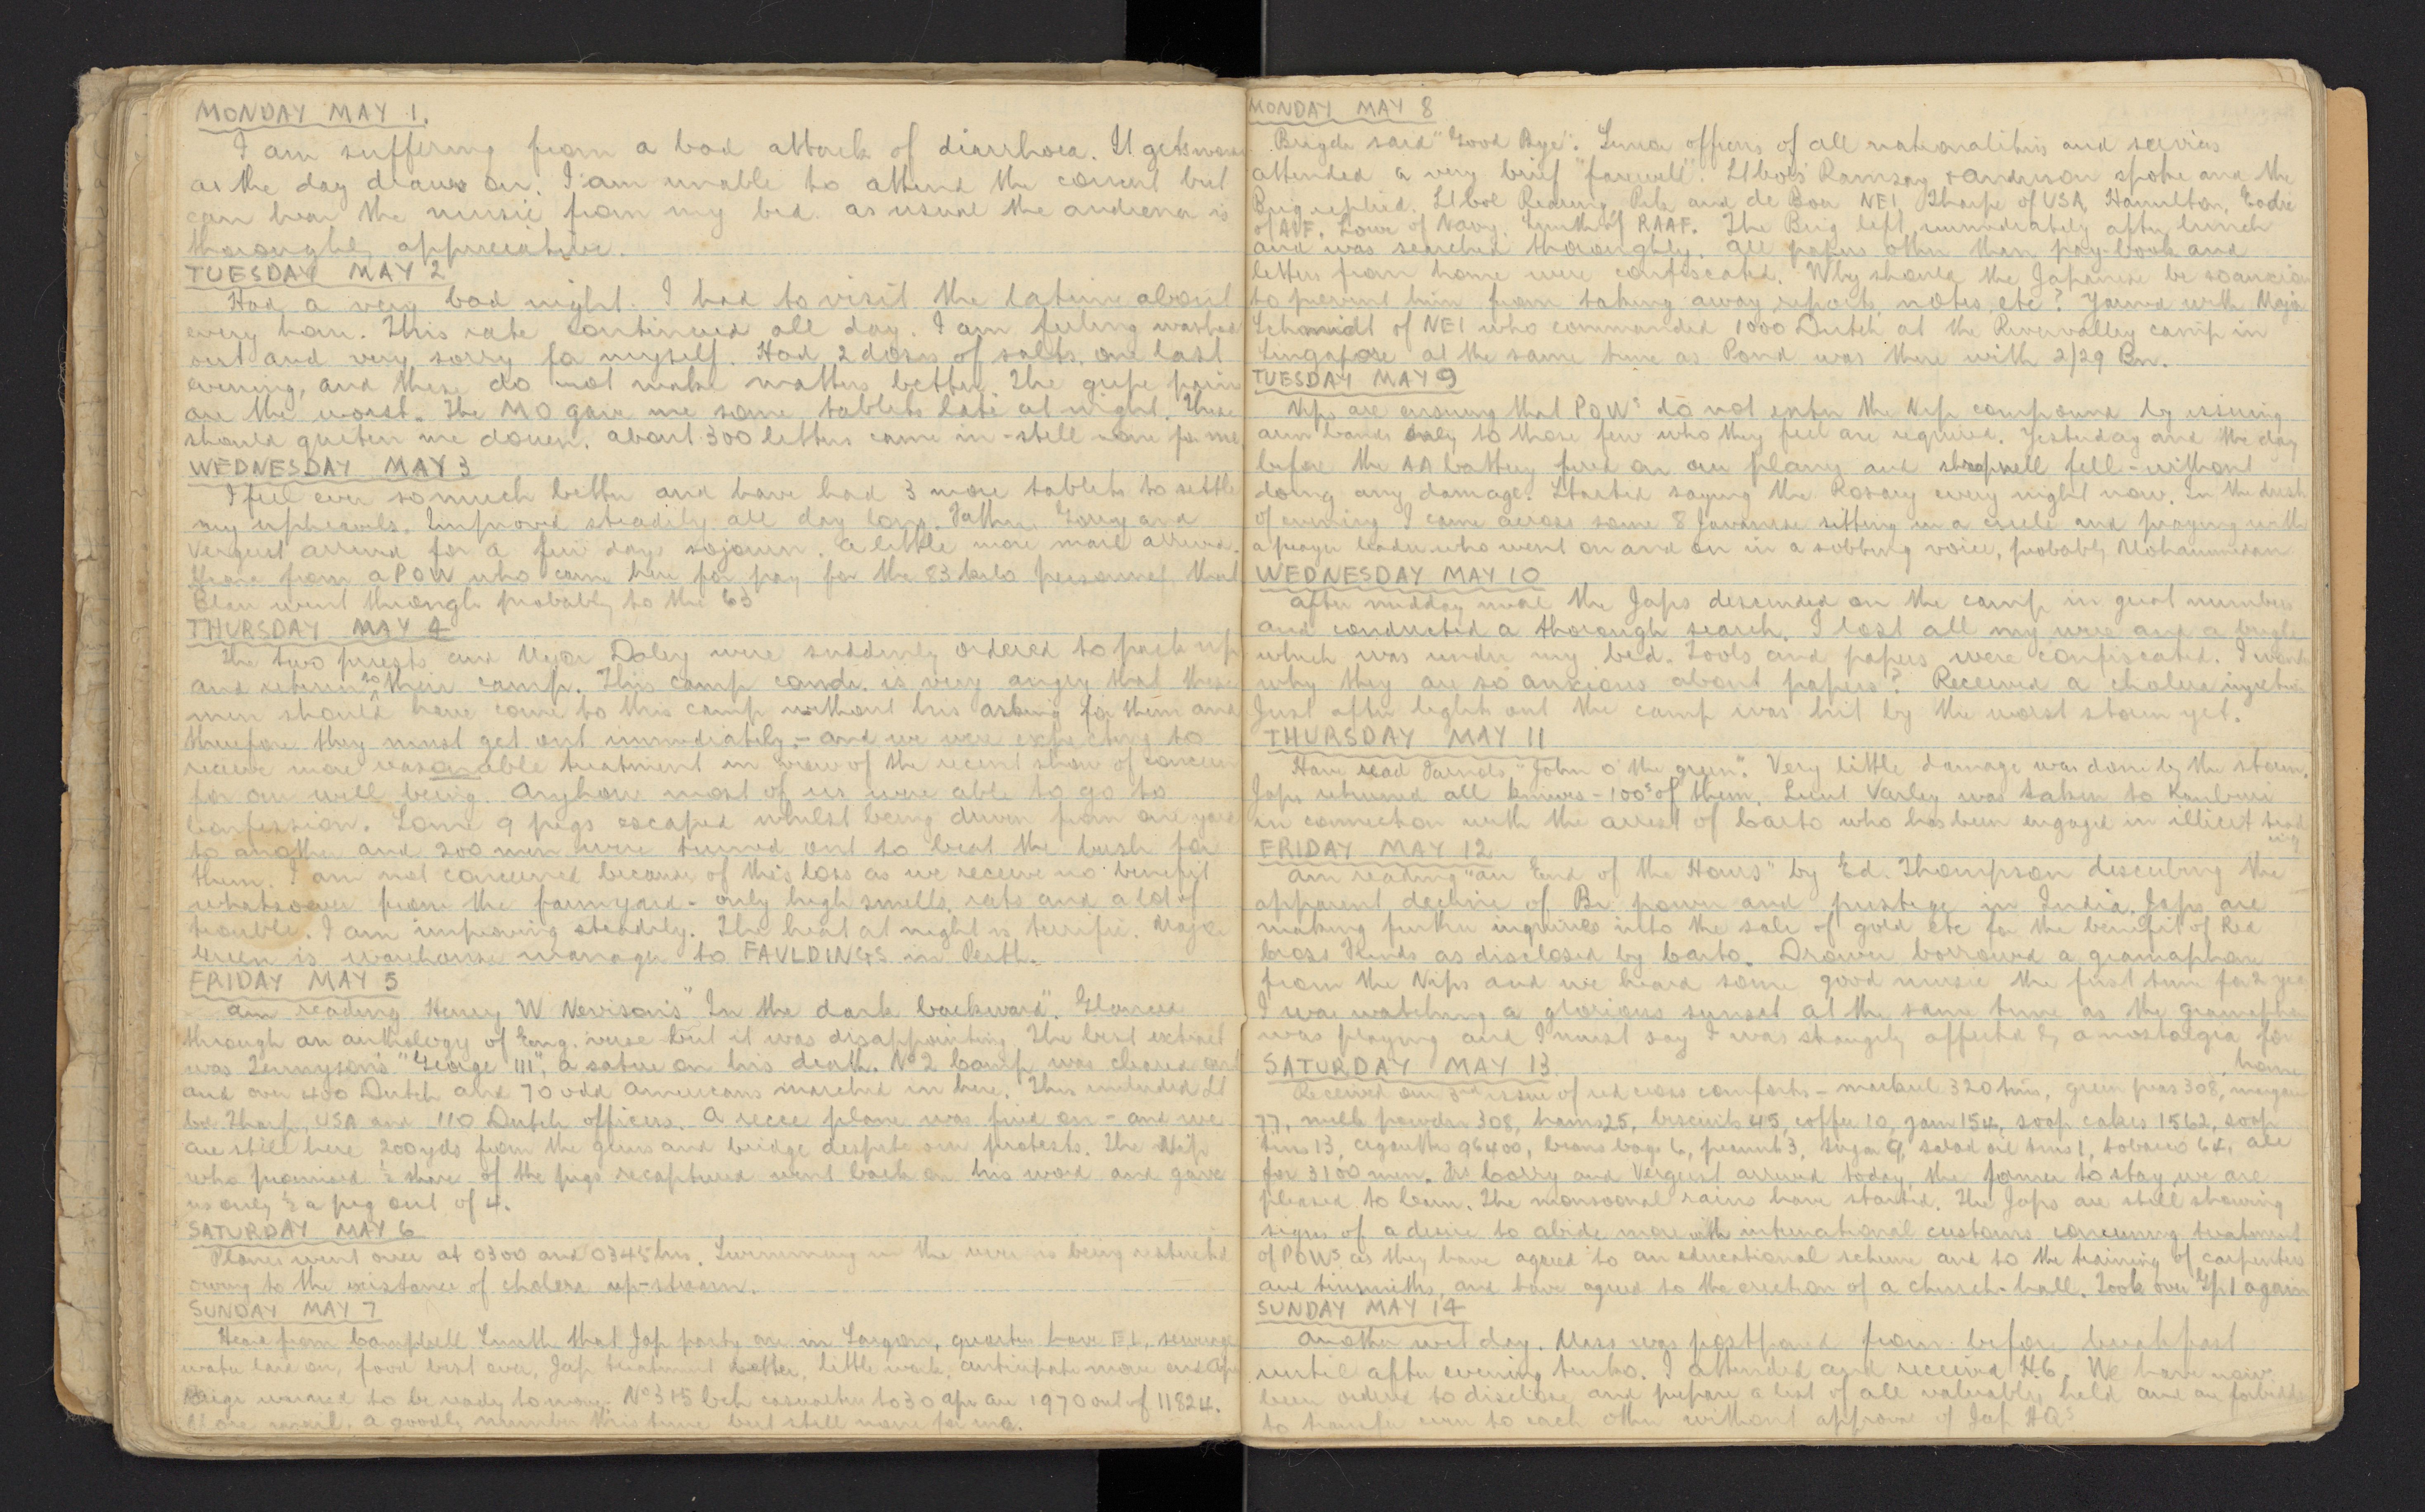 MONDAY MAY 1.
I am suffering from a bad attack of diarrhoea. It gets worse
as the day draws on. I am unable to attend the concert but
can hear the music from my bed. As usual the audience is
thoroughly appreciative.
TUESDAY MAY 2
Had a very bad night. I had to visit the latrine about
every hour. This rate continued all day. I am feeling washed
out and very sorry for myself. Had 2 doses of salts, one last
evening, and these do not make matters better. The gripe pains
are the worst. The MO gave me some tablets late at night. These
should quieten me down. About 300 letters came in - still none for me
WEDNESDAY MAY 3
I feel ever so much better and have had 3 more tablets to settle
my upheavals. Improved steadily all day long. Fathers Corry and
Vergeest arrived for a few days sojourn. A little more mail arrived.
Heard from a POW who came here for pay for the 83 kilo personnel that
went through probably to the 63
THURSDAY MAY 4
The two priests and Major Daley were suddenly ordered to pack up
and return to their camp. This camp comdr. is very angry that these
men should have come to this camp without his asking for them and
therefore they must get out immediately - and we were expecting to
receive more reasonable treatment in view of the recent show of concern
for our well being. Anyhow most of us were able to go to
Confession. Some 9 pigs escaped whilst being driven from one yard
to another and 200 men were turned out to beat the bush for
them. I am not concerned because of this loss as we receive no benefit
whatsoever from the farmyard - only high smells, rats and a lot of
trouble. I am improving steadily. The heat at night is terrific. Major
Green is warehouse manager to FAULDINGS in Perth.
FRIDAY MAY 5
Am reading Henry W Nevison's "In the dark backward". Glanced
through an anthology of Eng. verse but it was disappointing. The best extract
was Tennyson's "George III", a satire on his death. No 2 Camp was cleared out
and over 400 Dutch and 70 odd Americans marched in here. This included Lt
Col Tharp, USA and 110 Dutch officers. A recce plane was fired on - and we
are still here 200 yds from the guns and bridge despite our protests. The Nip
who promised ½ share of the pigs recaptured went back on his word and gave
us only ½ a pig out of 4.
SATURDAY MAY 6
Planes went over at 0300 and 0345 hrs. Swimming in the river is being restricted
owing to the existance of cholera up-stream.
SUNDAY MAY 7
Heard from Campbell Smith that Jap party are in Saigon, quarters have EL, sewerage
water laid on, food best ever, Jap treatment better, little work, anticipate move end Apr
Brig warned to be ready to move. No 3 + 5 bch casualties to 30 Apr are 1970 out of 11824.
More mail. A goodly number this time but still none for me.
MONDAY MAY 8
Brigde said "Good Bye". Senior officers of all nationalities and services
attended a very brief "farewell". Lt Cols Ramsay + Anderson spoke and the
Brig replied. Lt Col Rearing, and de Boer NEI, Tharp of USA, Hamilton, Eadie
of AIF, Lowe of Navy, Smith of RAAF. The Brig left immediately after lunch
and was searched thoroughly. All papers other than pay-book and
letters from home were confiscated. Why should the Japanese be so anxious
to prevent him from taking away reports, notes, etc? Yarned with Major
Schmidt of NEI who commanded 1000 Dutch at the Rivervalley camp in
Singapore at the same time as Pond was there with 2/29 Bn.
TUESDAY MAY 9
Nips are ensuring that POWs do not enter the Nip compound by issuing
arm bands only to those few who they feel are required. Yesterday and the day
before the AA battery fired on our planes and shrapnell fell - without
doing any damage. Started saying the Rosary every night now. In the dusk
of evening I came across some 8 Javanese sitting in a circle and praying with
a prayer leader who went on and on in a sobbing voice, probably Mohammedan
WEDNESDAY MAY 10
After midday meal the Japs descended on the camp in great numbers
and conducted a thorough search. I lost all my wire and a bugle
which was under my bed. Tools and papers were confiscated. I wonder
why they are so anxious about papers? Received a cholera injection
Just after lights out the camp was hit by the worst storm yet.
THURSDAY MAY 11
Have read "John o' the green". Very little damage was done by the storm.
Japs returned all knives - 100s of them. Lieut Varley was taken to Kanburi
in connection with the arrest of Carto who has been engaged in illicit trad
ing
FRIDAY MAY 12
Am reading "An End of the Hours" by Ed. Thompson describing the
apparent decline of Br power and prestige in India. Japs are
making further inquiries into the sale of gold etc for the benefit of Red
Cross Funds as disclosed by Carto. Drower borrowed a gramaphone
from the Nips and we heard some good music the first time for 2 yrs
I was watching a glorious sunset at the same time as the gramephone
was playing and I must say I was strangely affected by a nostalgia for
home
SATURDAY MAY 13.
Received our 3rd issue of red cross comforts - mackerel 320 tins, green peas 308, margarine
77, milk powder 308, hams 25, biscuits 45, coffee 10, jam 154, soap cakes 1562, soap
tins 13, cigarettes 96400, beans bags 6, peanuts 3, sugar 9, salad oil tins 1, tobacco 64, all
for 3100 men. Frs Corry and Vergeest arrived today, the former to stay, we are
pleased to learn. The monsoonal rains have started. The Japs are still showing
signs of a desire to abide more with international customs concerning treatment
of POWs as they have agreed to an educational scheme and to the training of carpenters
and tinsmiths, and have agreed to the erection of a church-hall. Took over Gp 1 again
SUNDAY MAY 14
Another wet day. Mass was postponed from before breakfast
until after evening tenko. I attended and received H.C. We have now
been ordered to disclose and prepare a list of all valuables held and are forbidden
to transfer even to each other without approval of Jap HQs